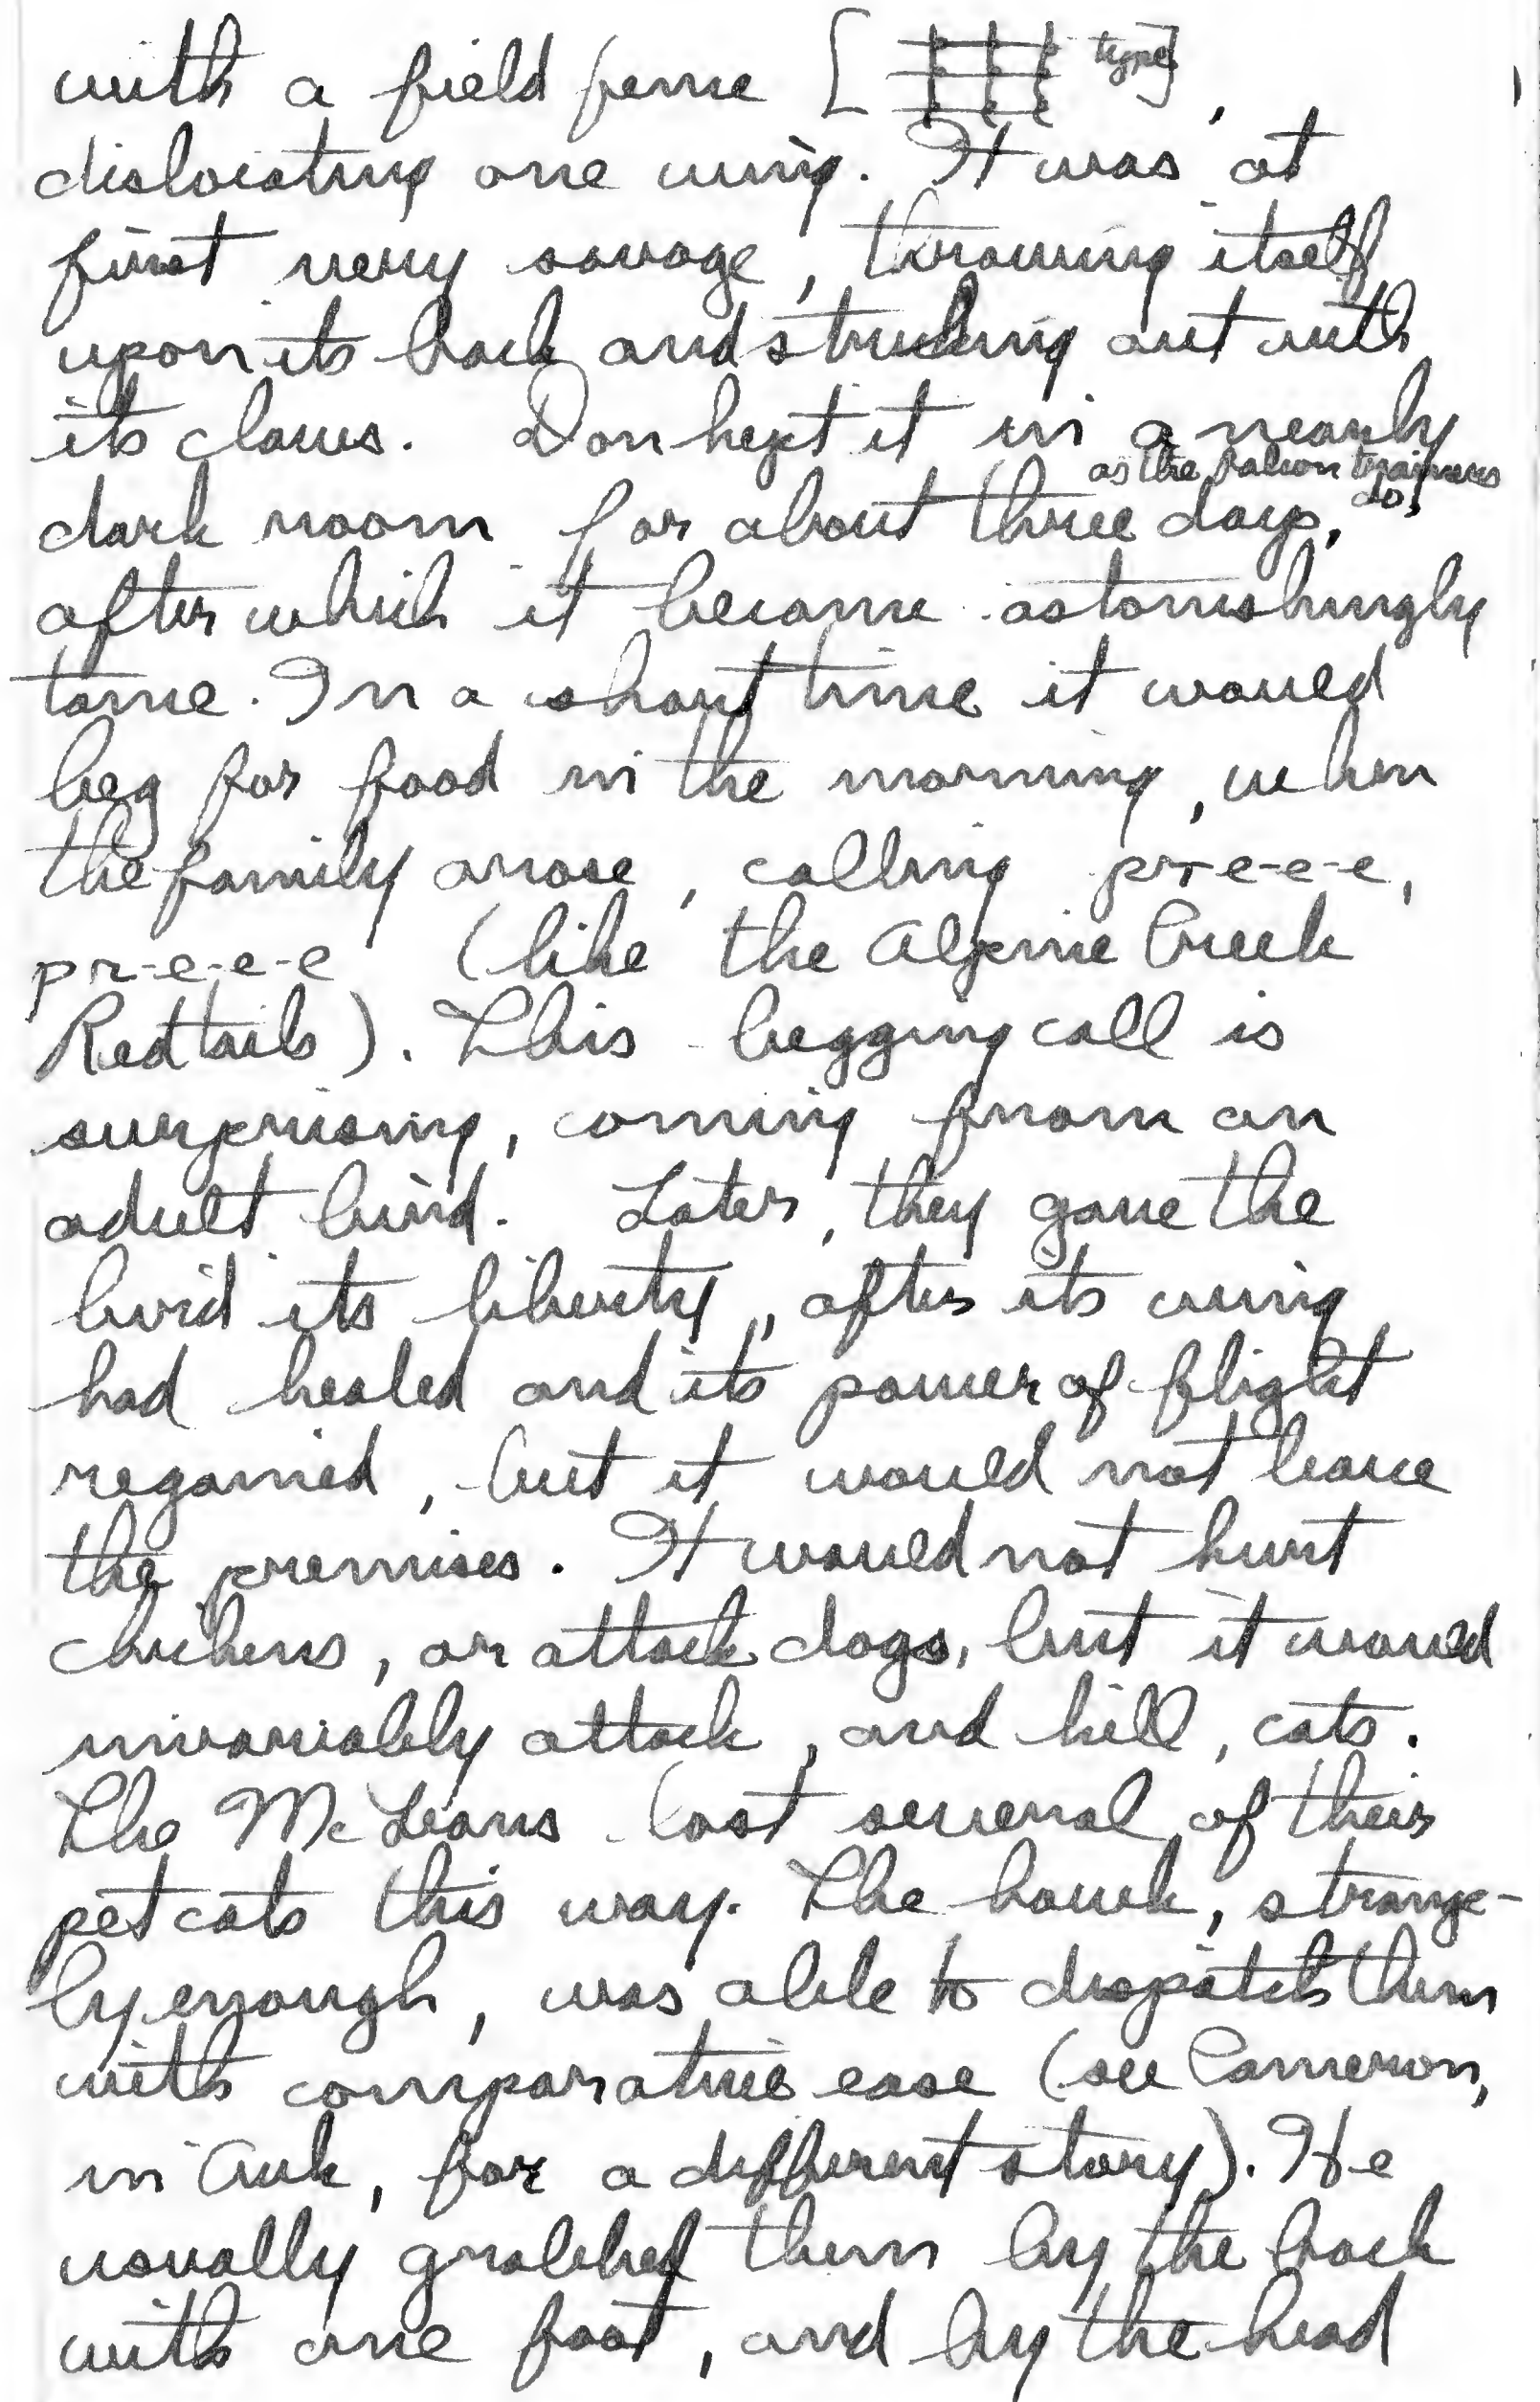 with a field fence [ type],
dislocating one wing. It was at
first very savage, throwing itself
upon its back and striking out with
its claws. Don kept it in a nearly
as the falcon trainers
dark room for about three days, do,
after which it became astonishingly
tame. In a short time it would
beg for food in the morning, when
the family arose, calling pr-e-e-e,
pr-e-e-e (like the Alpine Creek
Redtails). This begging call is
surprising, coming from an
adult bird. Later, they gave the
bird its liberty, after its wing
had healed and its power of flight
regained, but it would not leave
the premises. It would not hurt
chickens, or attack dogs, but it would
invariably attack, and kill, cats.
The McLeans lost several of their
pet cats this way. The hawk, strange-
ly enough, was able to dispatch them
with comparative ease (see Cameron,
in Auk, for a different story). He
usually grabbed them by the back
with one foot, and by the head